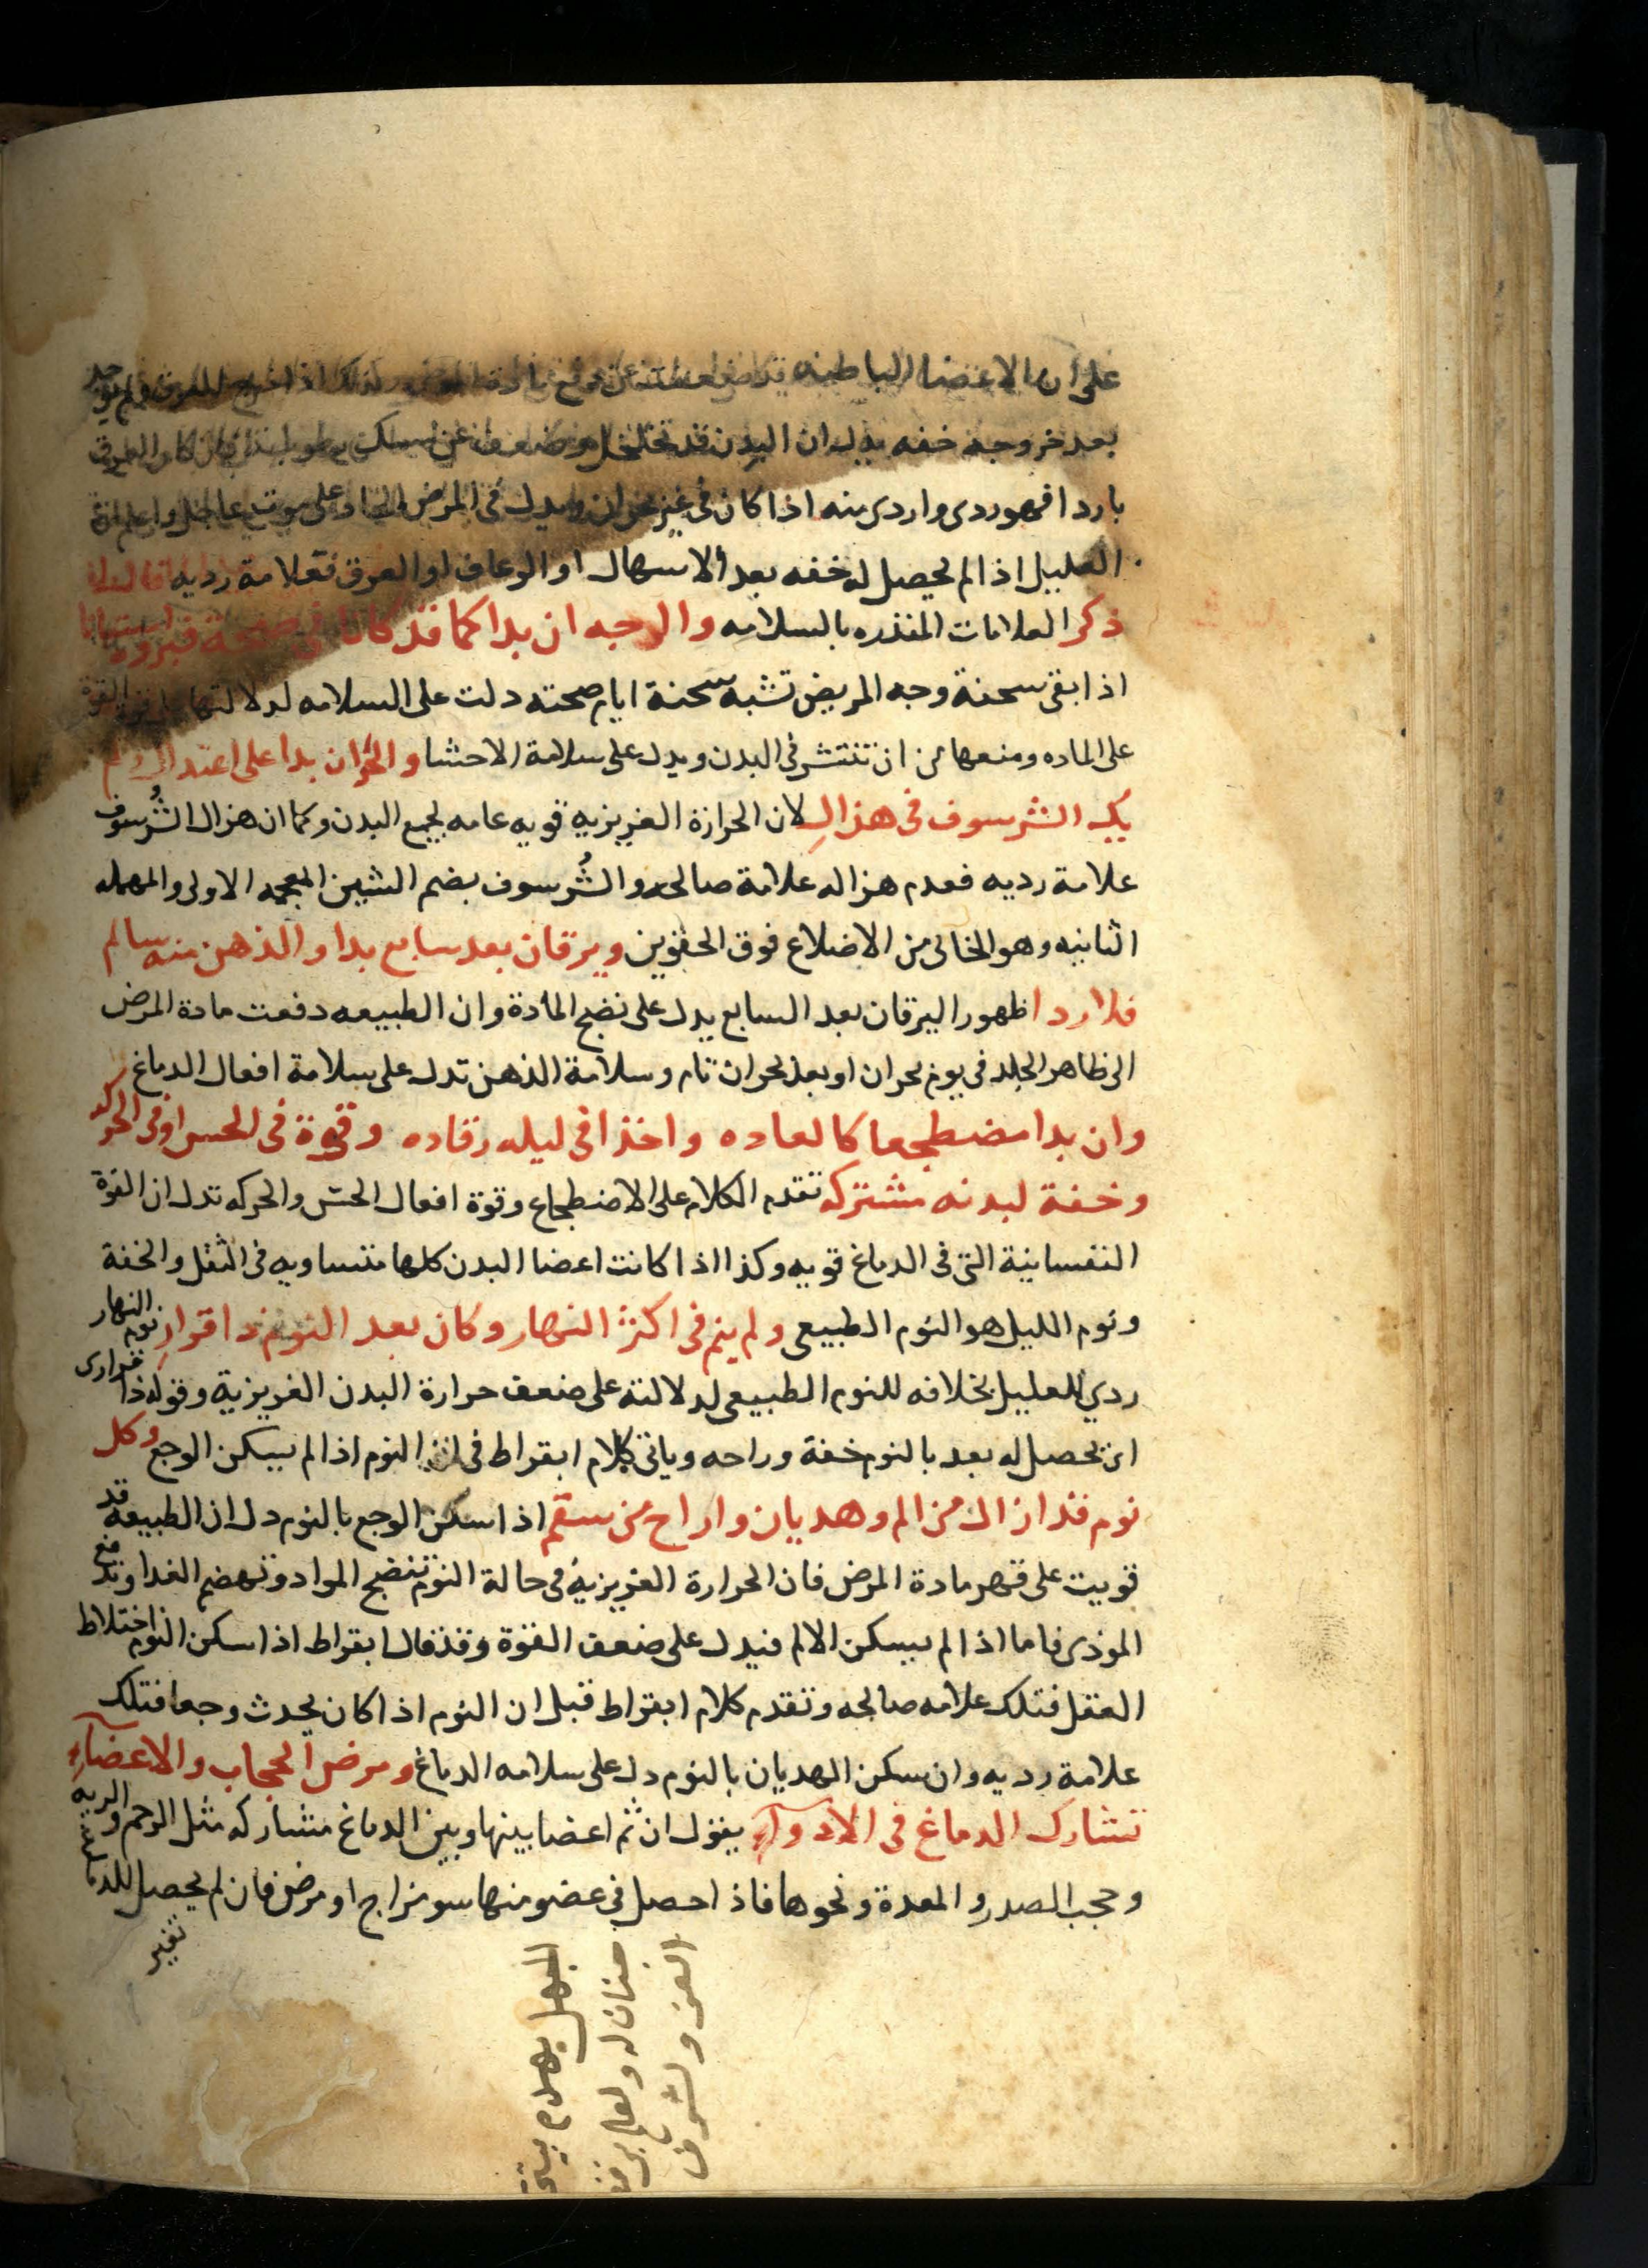 على ان الاعضا الباطنه
بعد خروجه خفه يدل ان البدن قد تخلخل وضعف عن امسك
باردا فهو ردى واردى منه اذا كان فى غير بحران ويدل فى المرض الحاد على موت عاجل واعلم ان
العليل اذا لم يحصل له خفه بعد الاسهال او الرعاف او العرق فعلامة رديه
ذكر العلامات المنذره بالسلامه والوجه ان بدا كما قد كانا فى صحة
اذا بقى سحنة وجه المريض تشبه سحنة ايام صحته دلت على السلامه لدلالتها القوة
على الماده ومنعها من ان تنتشر فى البدن ويدل على سلامة الاحشا والحر ان بدا على اعتدال ولم
يك الشرسوف فى هزال لان الحرارة الغريزيه قويه عامه لجميع البدن وكما ان هزال الشُرسوف
علامة رديه فعدم هزاله علامة صالحه والشُرسوف بضم الشين المعجمه الاولى والمهمله
الثانيه وهو الخالى من الاضلاع فوق الحقوين ويرقان بعد سابع بدا والذهن منه سالم
فلا ردا ظهور اليرقان بعد السابع يدل على نضج المادة وان الطبيعه دفعت مادة المرض
الى ظاهر الجلد فى يوم بحران او بعد بحران تام وسلامة الذهن تدل على سلامة افعال الدماغ
وان بدا مضطجعا كالعاده واخذا فى ليله رقاده وقوة فى الحس او فى الحركه
وخفة لبدنه مشتركه تقدم الكلام على الاضطجاع وقوة افعال الحس والحركه تدل ان القوة
النفسانية التى فى الدماغ قويه وكذا اذا كانت اعضا البدن كلها متساويه فى الثقل والخفة
ونوم الليل هو النوم الطبيعى ولم ينم فى اكثر النهار وكان بعد النوم ذا قرار نوم النهار
ردي للعليل بخلافه للنوم الطبيعى لدلالته على ضعف حرارة البدن الغريزية وقوله ذا قرار اى
ان يحصل له بعد بالنوم خفة وراحه وياتى كلام ابقراط فى ان النوم اذا لم يسكن الوجع وكل
نوم قد ازال من الم وهديان واراح من سقم اذا سكن الوجع بالنوم دل ان الطبيعة قد
قويت على قهر مادة المرض فان الحرارة الغريزية فى حالة النوم تنضج المواد وتهضم الغدا وتدفع
الموذى فاما اذا لم يسكن الالم فيدل على ضعف القوة وقد قال ابقراط اذا سكن النوم اختلاط
العقل فتلك علامه صالحه وتقدم كلام ابقراط قبل ان النوم اذا كان يحدث وجعا فتلك
علامة رديه وان سكن الهديان بالنوم دل على سلامه الدماغ ومرض الحجاب والاعضاء
تشارك الدماغ فى الادواء يقول ان ثم اعضا بينها وبين الدماغ مشاركه مثل الرحم والريه
وحجب الصدر والمعدة ونحوها فاذا حصل فى عضو منها سو مزاج او مرض فان لم يحصل للدماغ
تغير
الجهل يهدم بيت
العز والشرف